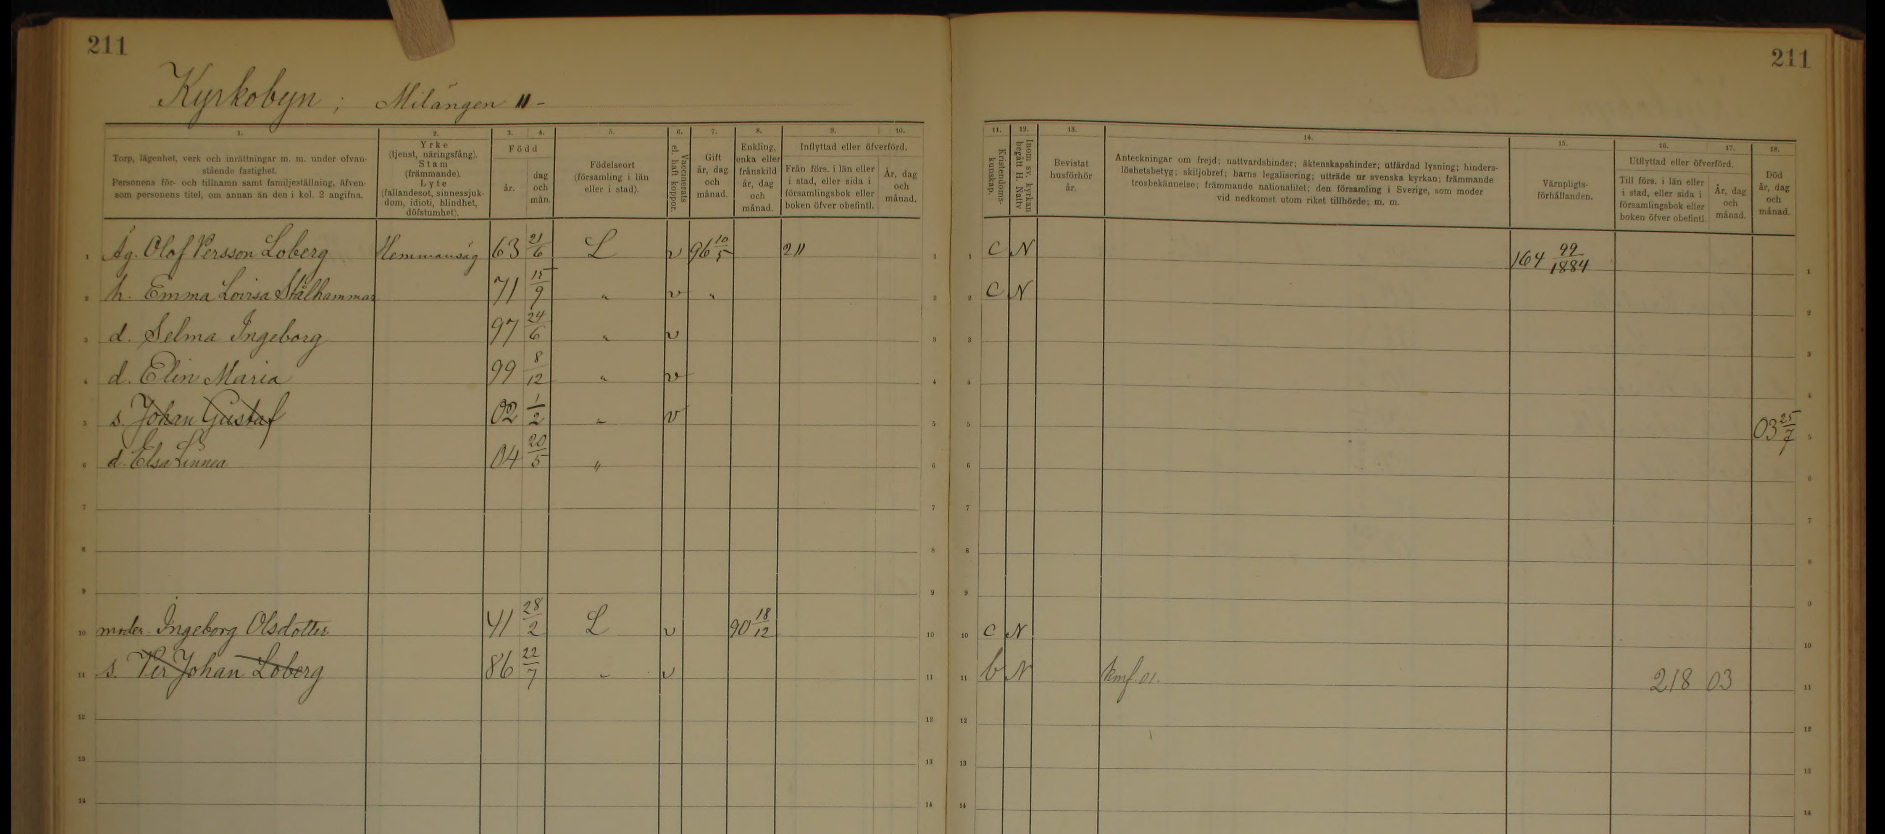 211
211
Kyrkobyn; Milängen 11 -
1. 2. 3. 4. 5. 6. 7. 8. 9. 10.
Torp, lägenhet, verk och inrättningar m. m. under ofvan-
stående fastighet.
Personens för- och tillnamn samt familjeställning, äfven-
som personens titel, om annan än den i kol. 2 angifna.
Yrke
(tjenst, näringsfång).
Stam
(främmande).
Lyte
(fallandesot, sinnessjuk-
dom, idioti, blindhet,
döfstumhet).
Född
år.
dag
och
mån.
Födelseort
(församling i län
eller i stad).
Vaccinerats
el. haft koppor.
Gift
år, dag
och
månad.
Enkling,
enka eller
frånskild
år, dag
och
månad.
Inflyttad eller öfverförd.
Från förs. i län eller
i stad, eller sida i
församlingsbok eller
boken öfver obefintl.
År, dag
och
månad.
11. 12. 13. 14. 15. 16. 17. 18.
Kristendoms-
kunskap.
Inom sv. kyrkan
begått H. Nattv
Bevistat
husförhör
år.
Anteckningar om frejd; nattvardshinder; äktenskapshinder; utfärdad lysning; hinders-
löshetsbetyg; skiljobref; barns legalisering; utträde ur svenska kyrkan; främmande
trosbekännelse; främmande nationalitet; den församling i Sverige, som moder
vid nedkomst utom riket tillhörde; m. m.
Värnpligts-
förhållanden.
Utflyttad eller öfverförd.
Till förs. i län eller
i stad, eller sida i
församlingsbok eller
boken öfver obefintl.
År, dag
och
månad.
Död
år, dag
och
månad.
1 Äg. Olof Persson Loberg Hemmansäg 63 21/6 L v 96 10/5 211 1 1 C N 164 99/1884 1
2 h. Emma Lovisa Stålhammar 71 15/9 " v " 2 2 C N 2
3 d. Selma Ingeborg 97 24/6 " v 3 3 3
4 d. Elin Maria 99 8/12 " v 4 4 4
5 s. Johan Gustaf 02 1/2 " v 5 5 03 25/7 5
6 d. Elsa Linnea 04 20/5 " 6 6 6
7 7 7 7
8 8 8 8
9 9 9 9
10 moder Ingeborg Olsdotter 41 28/2 L v 90 18/12 10 10 C N 10
11 s. Per Johan Loberg 86 22/7 " v 11 11 b N kmf. 01. 218 03 11
12 12 12 12
13 13 13 13
14 14 14 14